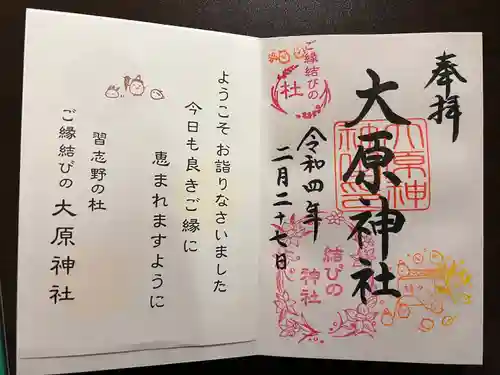 奉拝
大原神社
大原神
社之印
令和四年
二月二十七日
ご縁結びの
社
結びの
神社
ようこそ お詣りなさいました
今日も良きご縁に
恵まれますように
習志野の杜
ご縁結びの 大原神社